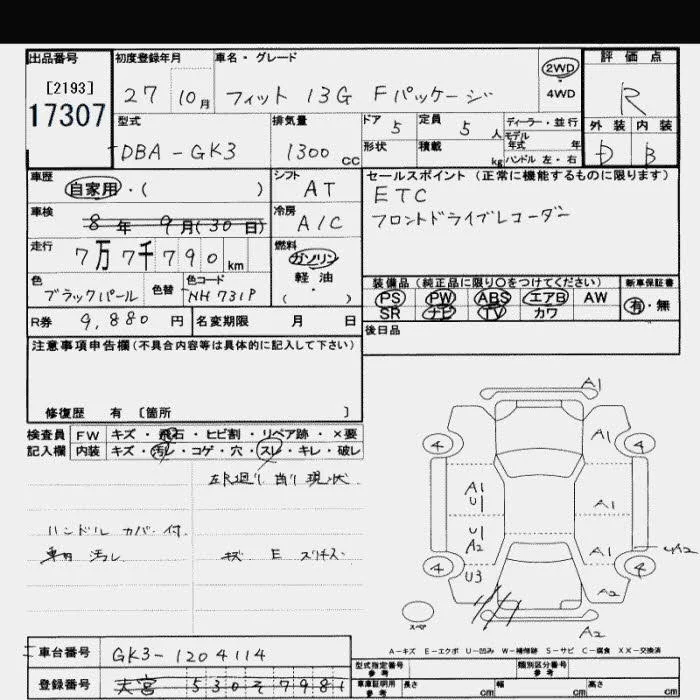 出品番号 初度登録年月 車名・グレード 2WD 評価点
[2193] 27 10月 フィット 13G Fパッケージ 4WD R
17307
型式 排気量 ドア 5 定員 5 人 ディーラー・並行 外装 内装
DBA-GK3 1300 cc 形状 積載 kg モデル年式 年 D B
ハンドル 左・右
車歴 シフト セールスポイント (正常に機能するものに限ります)
自家用・( ) AT ETC
車検 8年 9月(30日) 冷房 A/C フロントドライブレコーダー
走行 7万7千790km 燃料 ガソリン
軽油
( )
色 ブラックパール 色替 色コード NH731P
装備品 (純正品に限り〇をつけてください) 新車保証書
PS PW ABS エアB AW 有・無
SR ナビ TV カワ
R券 9,880円 名変期限 月 日 後日品
注意事項申告欄(不具合内容等は具体的に記入して下さい)
修復歴 有 [箇所 ]
検査員 FW キズ・飛石・ヒビ割・リペア跡・×要
記入欄 内装 キズ・汚レ・コゲ・穴・スレ・キレ・破レ
現状
ハンドルカバー付
汚レ キズ E
A1
A1
4 4
A1
U1 A1
U1
A2 A1
4 U3 4 A2
A2
スペア A2
A-キズ E-エクボ U-凹み W-補修跡 S-サビ C-腐食 XX-交換済
車台番号 GK3-1204114
型式指定番号 参考 類別区分番号 参考
登録番号 530 そ 7981
車庫証明用 参考 長さ cm 幅 cm 高さ cm